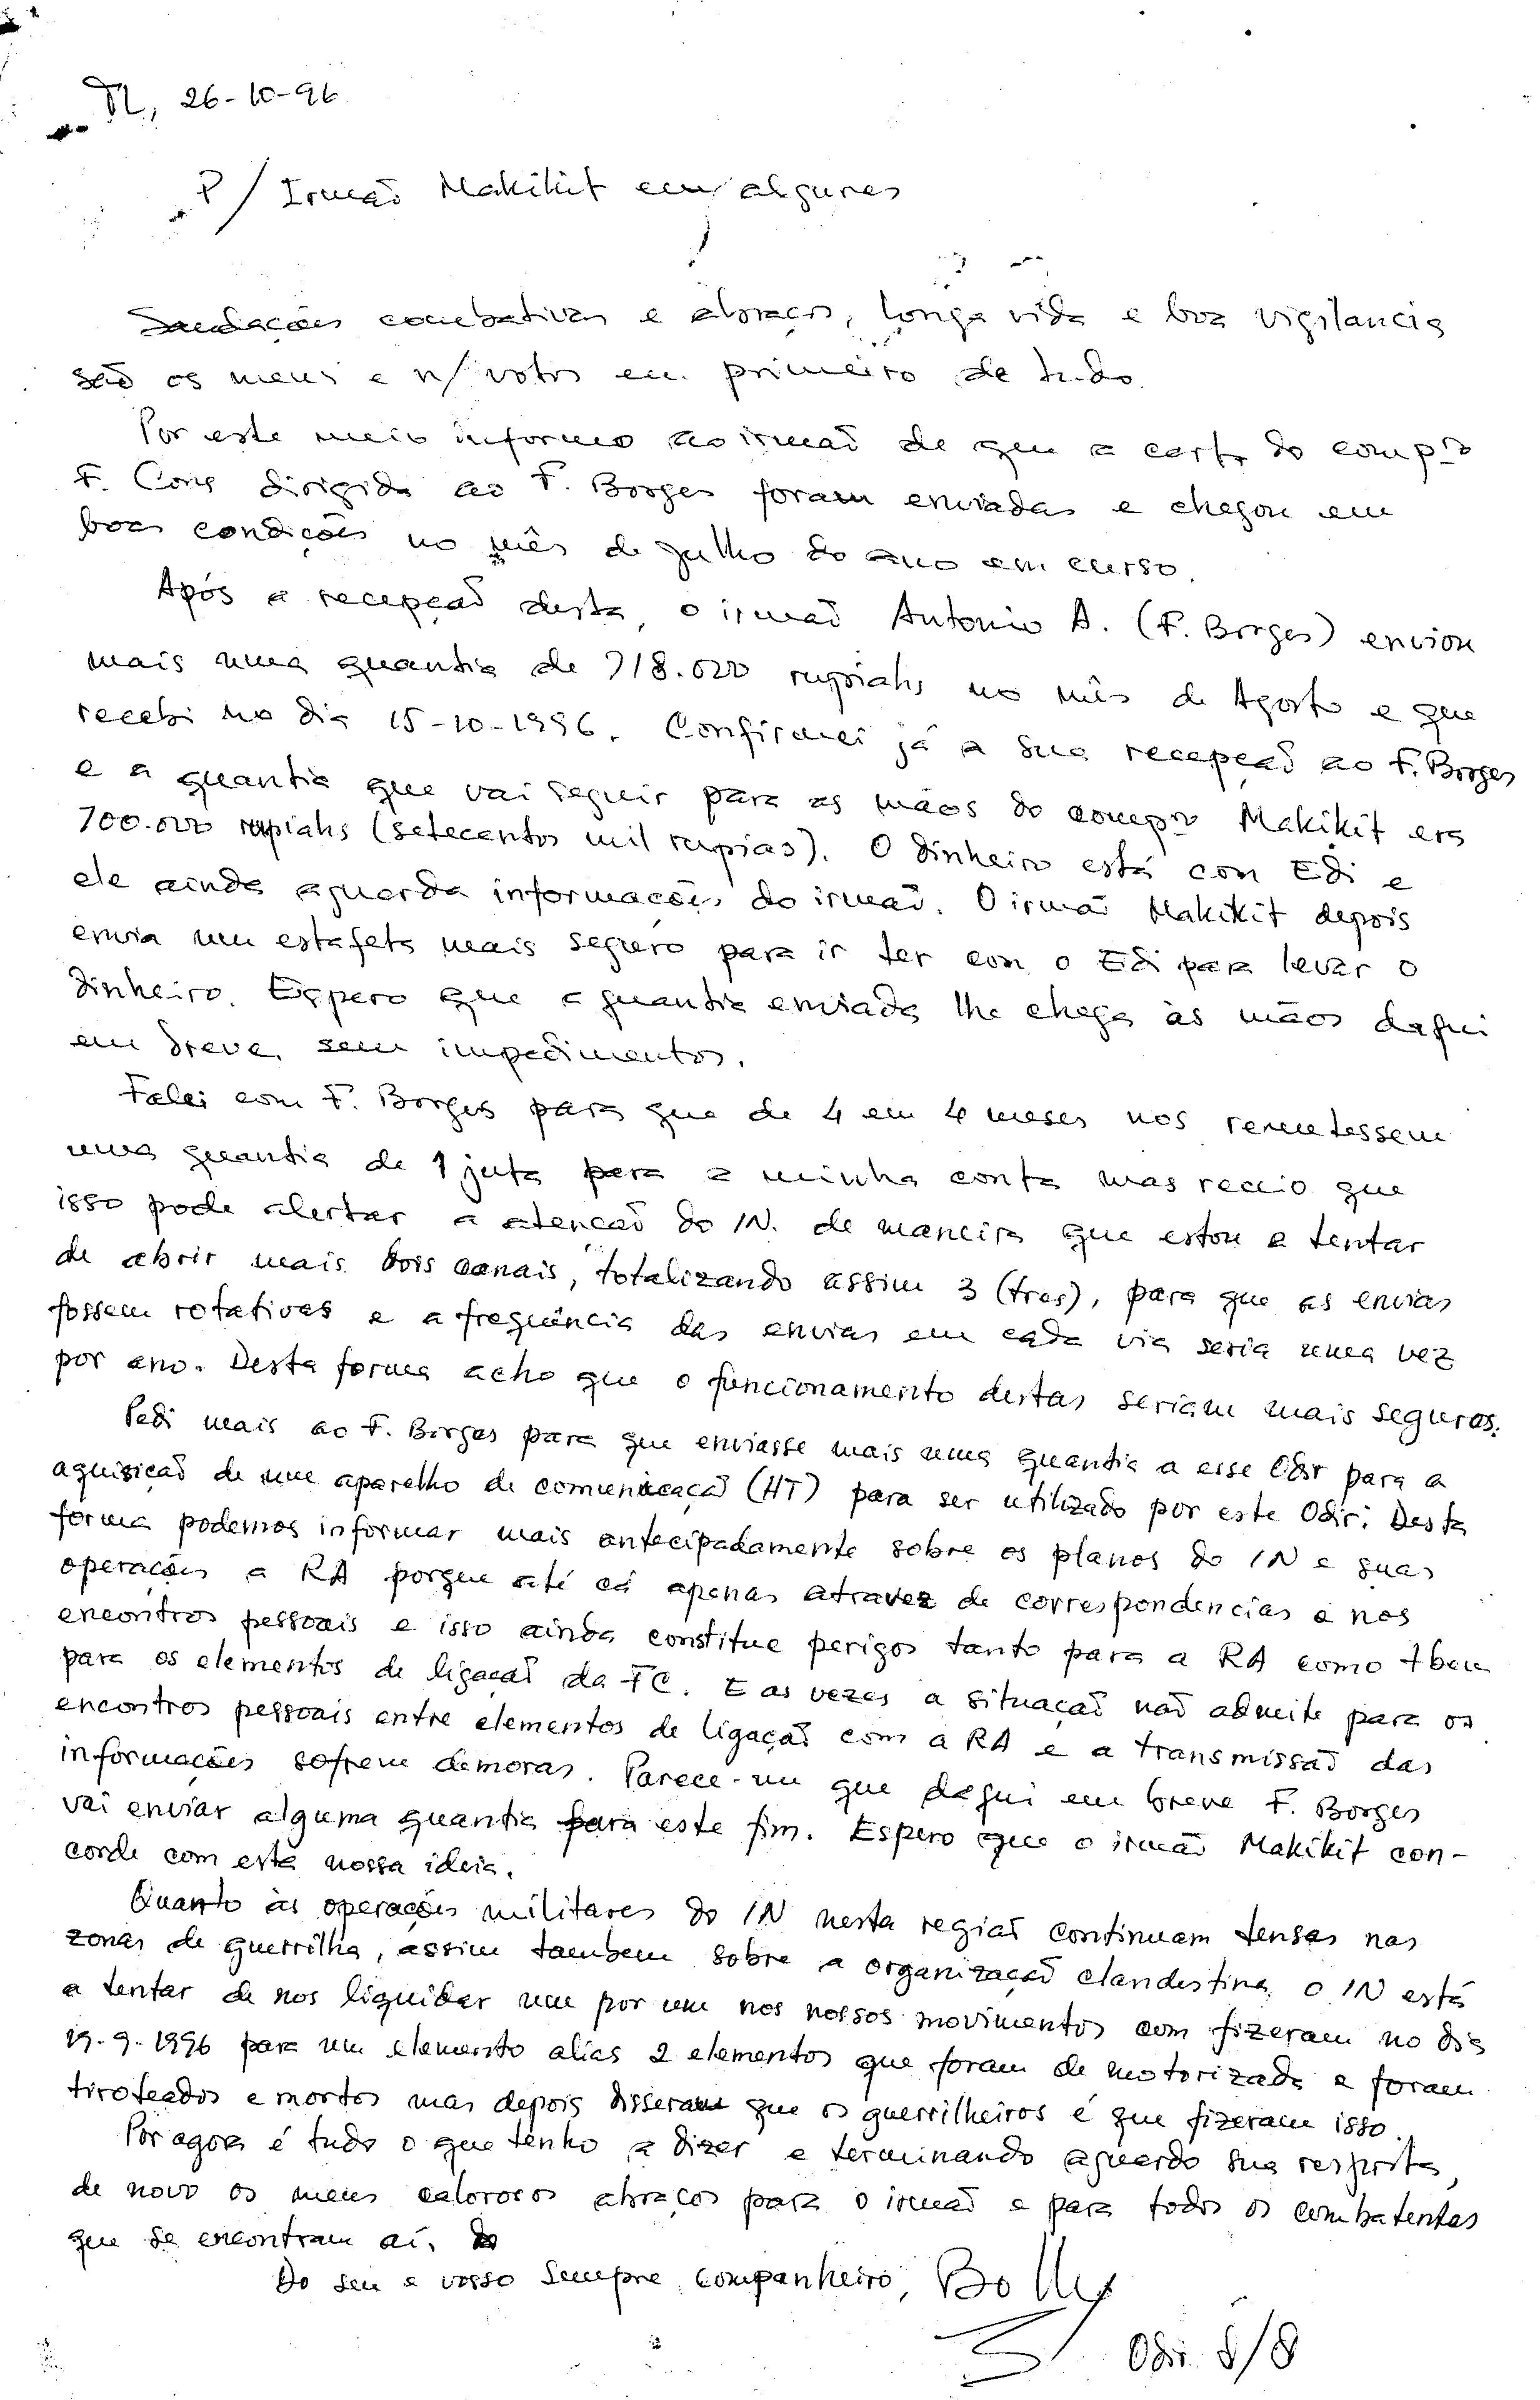 TL, 26-10-96
P/ Irmão Makikit em algures
Saudações combativas e abraços, longa vida e boa vigilancia
são os meus e n/ votos em primeiro de tudo.
Por este meio informo ao irmão de que a carta do compº
F. Cong dirigida ao F. Borges foram enviadas e chegou em
boas condições no mês de Julho do ano em curso.
Após a recepção desta, o irmão Antonio A. (F. Borges) enviou
mais uma quantia de 718.000 rupiahs no mês de Agosto e que
recebi no dia 15-10-1996. Confirmei já a sua recepção ao F. Borges
e a quantia que vai seguir para as mãos do compº Makikit era
700.000 rupiahs (setecentos mil rupias). O dinheiro está con Edi e
ele ainda aguarda informações do irmão. O irmão Makikit depois
envia um estafeta mais seguro para ir ter con o Edi para levar o
dinheiro. Espero que a quantia enviada lhe chega às mãos daqui
em breve, sem impedimentos.
Falei com F. Borges para que de 4 em 4 meses nos remetessem
uma quantia de 1 juta para a minha conta mas receio que
isso pode alertar a atenção do IN. de maneira que estou a tentar
de abrir mais dois canais, totalizando assim 3 (tres), para que as envias
fossem rotativas e a frequência das envias em cada via seria uma vez
por ano. Desta forma acho que o funcionamento destas seriam mais seguras.
Pedi mais ao F. Borges para que enviasse mais uma quantia a esse Odir para a
aquisição de um aparelho de comunicação (HT) para ser utilizado por este Odir. Desta
forma podemos informar mais antecipadamente sobre os planos do IN e suas
operações a RA porque até cá apenas atravez de correspondencias e nos
encontros pessoais e isso ainda constitue perigos tanto para a RA como tbem
para os elementos de ligação da FC. E as vezes a situação não admite para os
encontros pessoais entre elementos de ligação com a RA e a transmissão das
informações sofrem demoras. Parece-me que daqui em breve F. Borges
vai enviar alguma quantia para este fim. Espero que o irmão Makikit con-
corde com esta nossa ideia.
Quanto às operações militares do IN nesta região continuam tensas nas
zonas de guerrilha, assim tambem sobre a organização clandestina, o IN está
a tentar de nos liquidar um por um nos nossos movimentos com fizeram no dia
19-9-1996 para um elemento alias 2 elementos que foram de motorizada e foram
tiroteados e mortos mas depois disseram que os guerrilheiros é que fizeram isso.
Por agora é tudo o que tenho a dizer e terminando aguardo sua resposta,
de novo os meus calorosos abraços para o irmão e para todos os combatentes
que se encontram aí.
Do seu e vosso sempre companheiro, Bolly
Odir 8/8